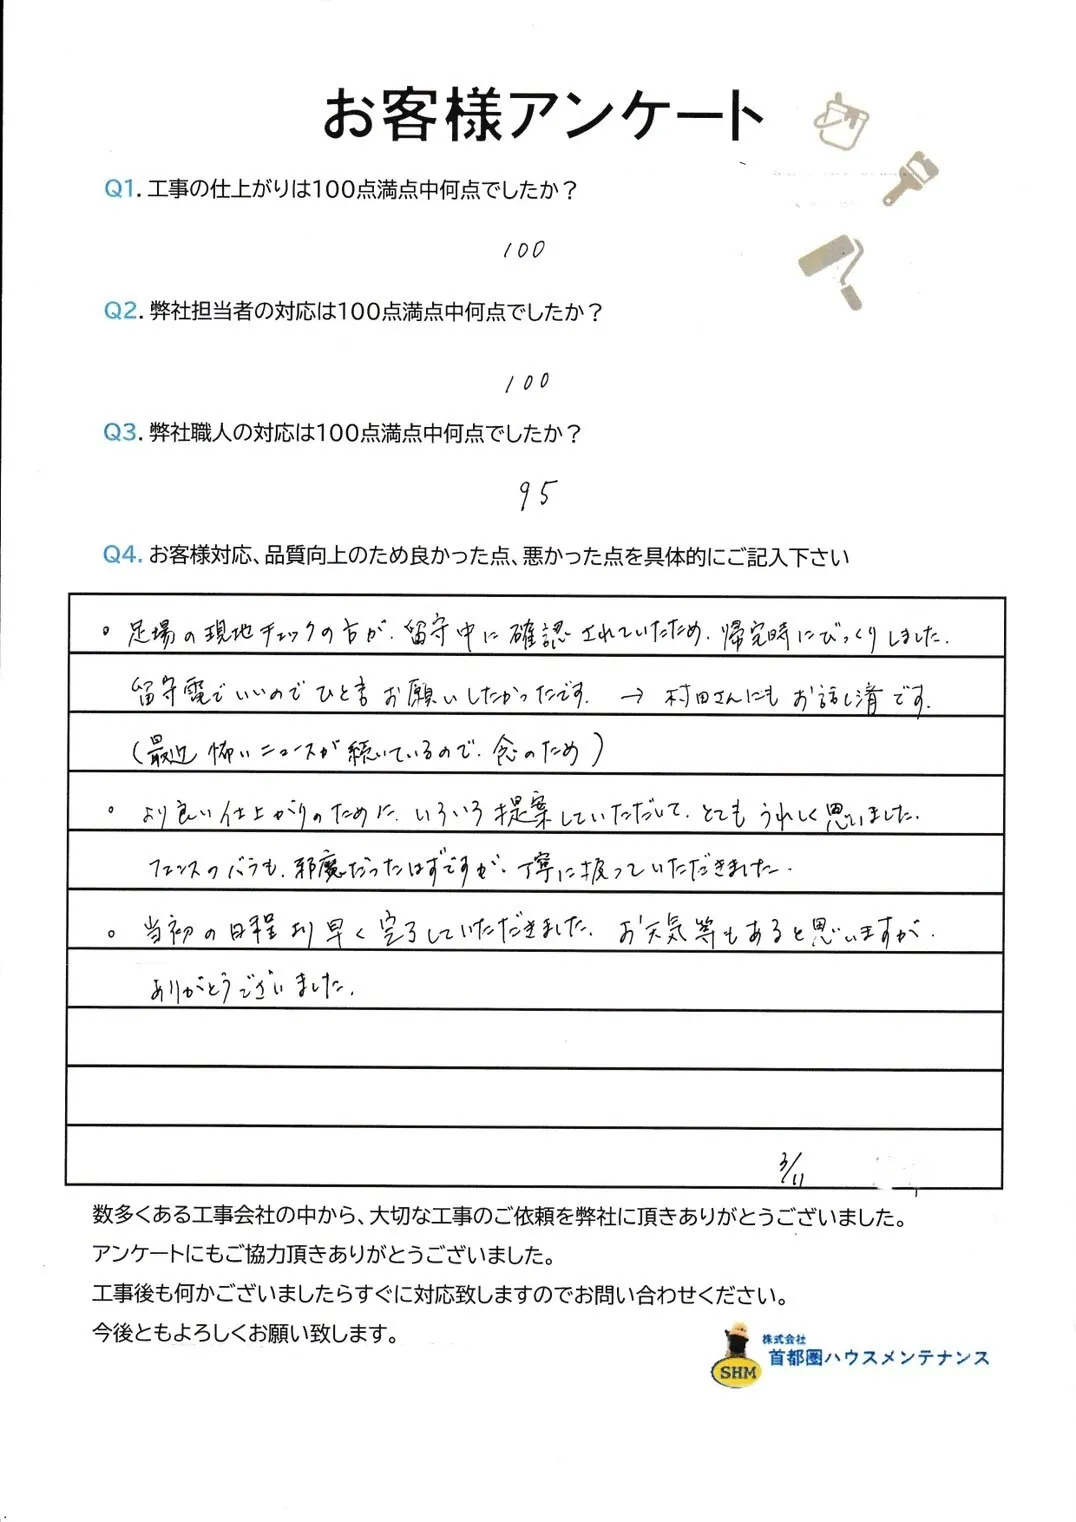 お客様アンケート
Q1. 工事の仕上がりは100点満点中何点でしたか？
100
Q2. 弊社担当者の対応は100点満点中何点でしたか？
100
Q3. 弊社職人の対応は100点満点中何点でしたか？
95
Q4. お客様対応、品質向上のため良かった点、悪かった点を具体的にご記入下さい
。足場の現地チェックの方が、留守中に確認されていたため、帰宅時にびっくりしました。
留守電でいいのでひと言お願いしたかったです。 → 村田さんにもお話し済です。
(最近怖いニュースが続いているので、念のため)
。より良い仕上がりのために、いろいろ提案していただいて、とてもうれしく思いました。
フェンスのバラも、邪魔だったはずですが、丁寧に扱っていただきました。
。当初の日程より早く完了していただきました。お天気等もあると思いますが、
ありがとうございました。
3/11
数多くある工事会社の中から、大切な工事のご依頼を弊社に頂きありがとうございました。
アンケートにもご協力頂きありがとうございました。
工事後も何かございましたらすぐに対応致しますのでお問い合わせください。
今後ともよろしくお願い致します。
SHM 株式会社
首都圏ハウスメンテナンス